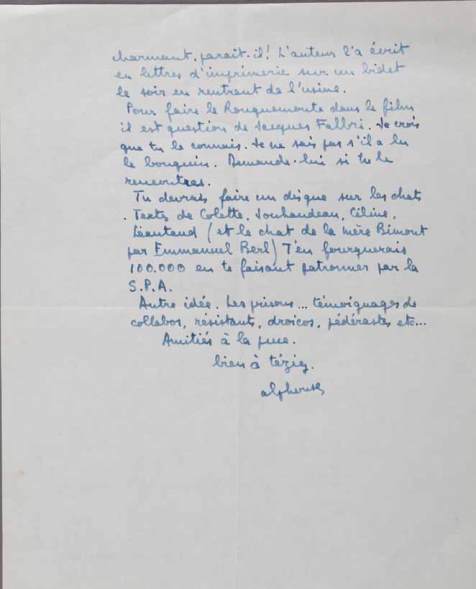 charmant, parait-il! L'auteur l'a écrit
en lettres d'imprimerie sur un bidet
le soir en rentrant de l'usine.
Pour faire le Rouquemoute dans le film
il est question de Jacques Fabbri. Je crois
que tu le connais. Je ne sais pas s'il a lu
le bouquin. Demande-lui si tu le
rencontres.
Tu devrais faire un disque sur les chats
. Texte de Colette, Jouhandeau, Céline,
Léautaud (et le chat de la mère
par Emmanuel Berl) T'en fourguerais
100.000 en te faisant patronner par la
S.P.A.
Autre idée. Les prisons... témoignages de
collabos, résistants, droicos, pédérastes etc...
Amitiés à la puce.
bien à tézig
alphonse